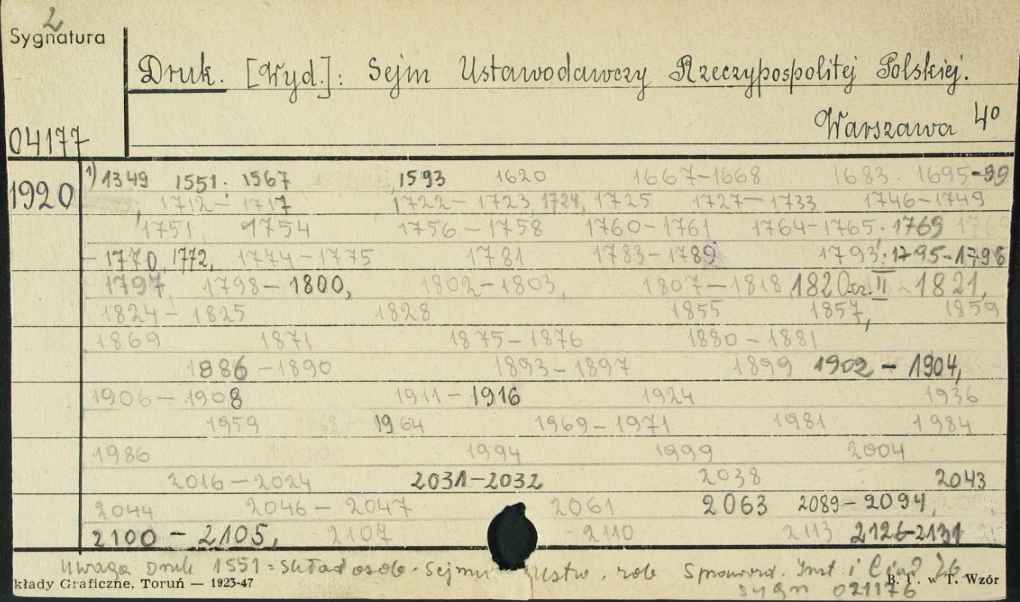 2
Sygnatura
Druk. [Wyd.]: Sejm Ustawodawczy Rzeczypospolitej Polskiej.
04177 Warszawa 4°
1920 1) 1349 1551. 1567 1593 1620 1667-1668 1683. 1695-99
1712-1717 1722-1723 1724, 1725 1727-1733 1746-1749
1751 1754 1756-1758 1760-1761 1764-1765. 1769
-1770, 1772, 1774-1775 1781 1783-1789 1793. 1795-1796
1797, 1798-1800, 1802-1803, 1807-1818 1820 II - 1821,
1824-1825 1828 1855 1857, 1859
1869 1871 1875-1876 1880-1881
1886-1890 1893-1897 1899 1902-1904,
1906-1908 1911-1916 1924 1936
1959 1964 1969-1971 1981 1984
1986 1994 1999 2004
2016-2024 2031-2032 2038 2043
2044 2046-2047 2061 2063 2089-2094,
2100-2105, 2107 2110 2113 2126-2131
Uwaga Druk 1551 = Skład osob. Sejmu Ustw. rob Sprawozd. Inst. i
sygn 021176
kłady Graficzne, Toruń — 1923-47 B. T. w T. Wzór